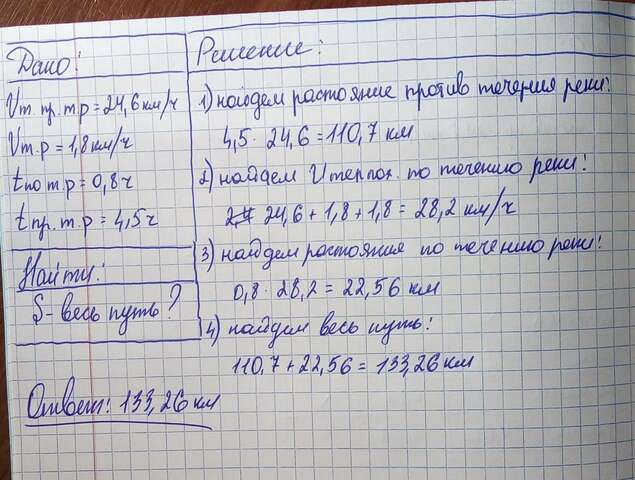 Дано:
Vт. пр. т. р = 24,6 км/ч
Vт. р = 1,8 км/ч
t по т. р = 0,8 ч
t пр. т. р = 4,5 ч
Найти:
S - весь путь?
Решение:
1) найдем растояние против течения реки:
4,5 · 24,6 = 110,7 км
2) найдем Vтеплох. по течению реки:
24,6 + 1,8 + 1,8 = 28,2 км/ч
3) найдем растояния по течению реки:
0,8 · 28,2 = 22,56 км
4) найдем весь путь:
110,7 + 22,56 = 133,26 км
Ответ: 133,26 км